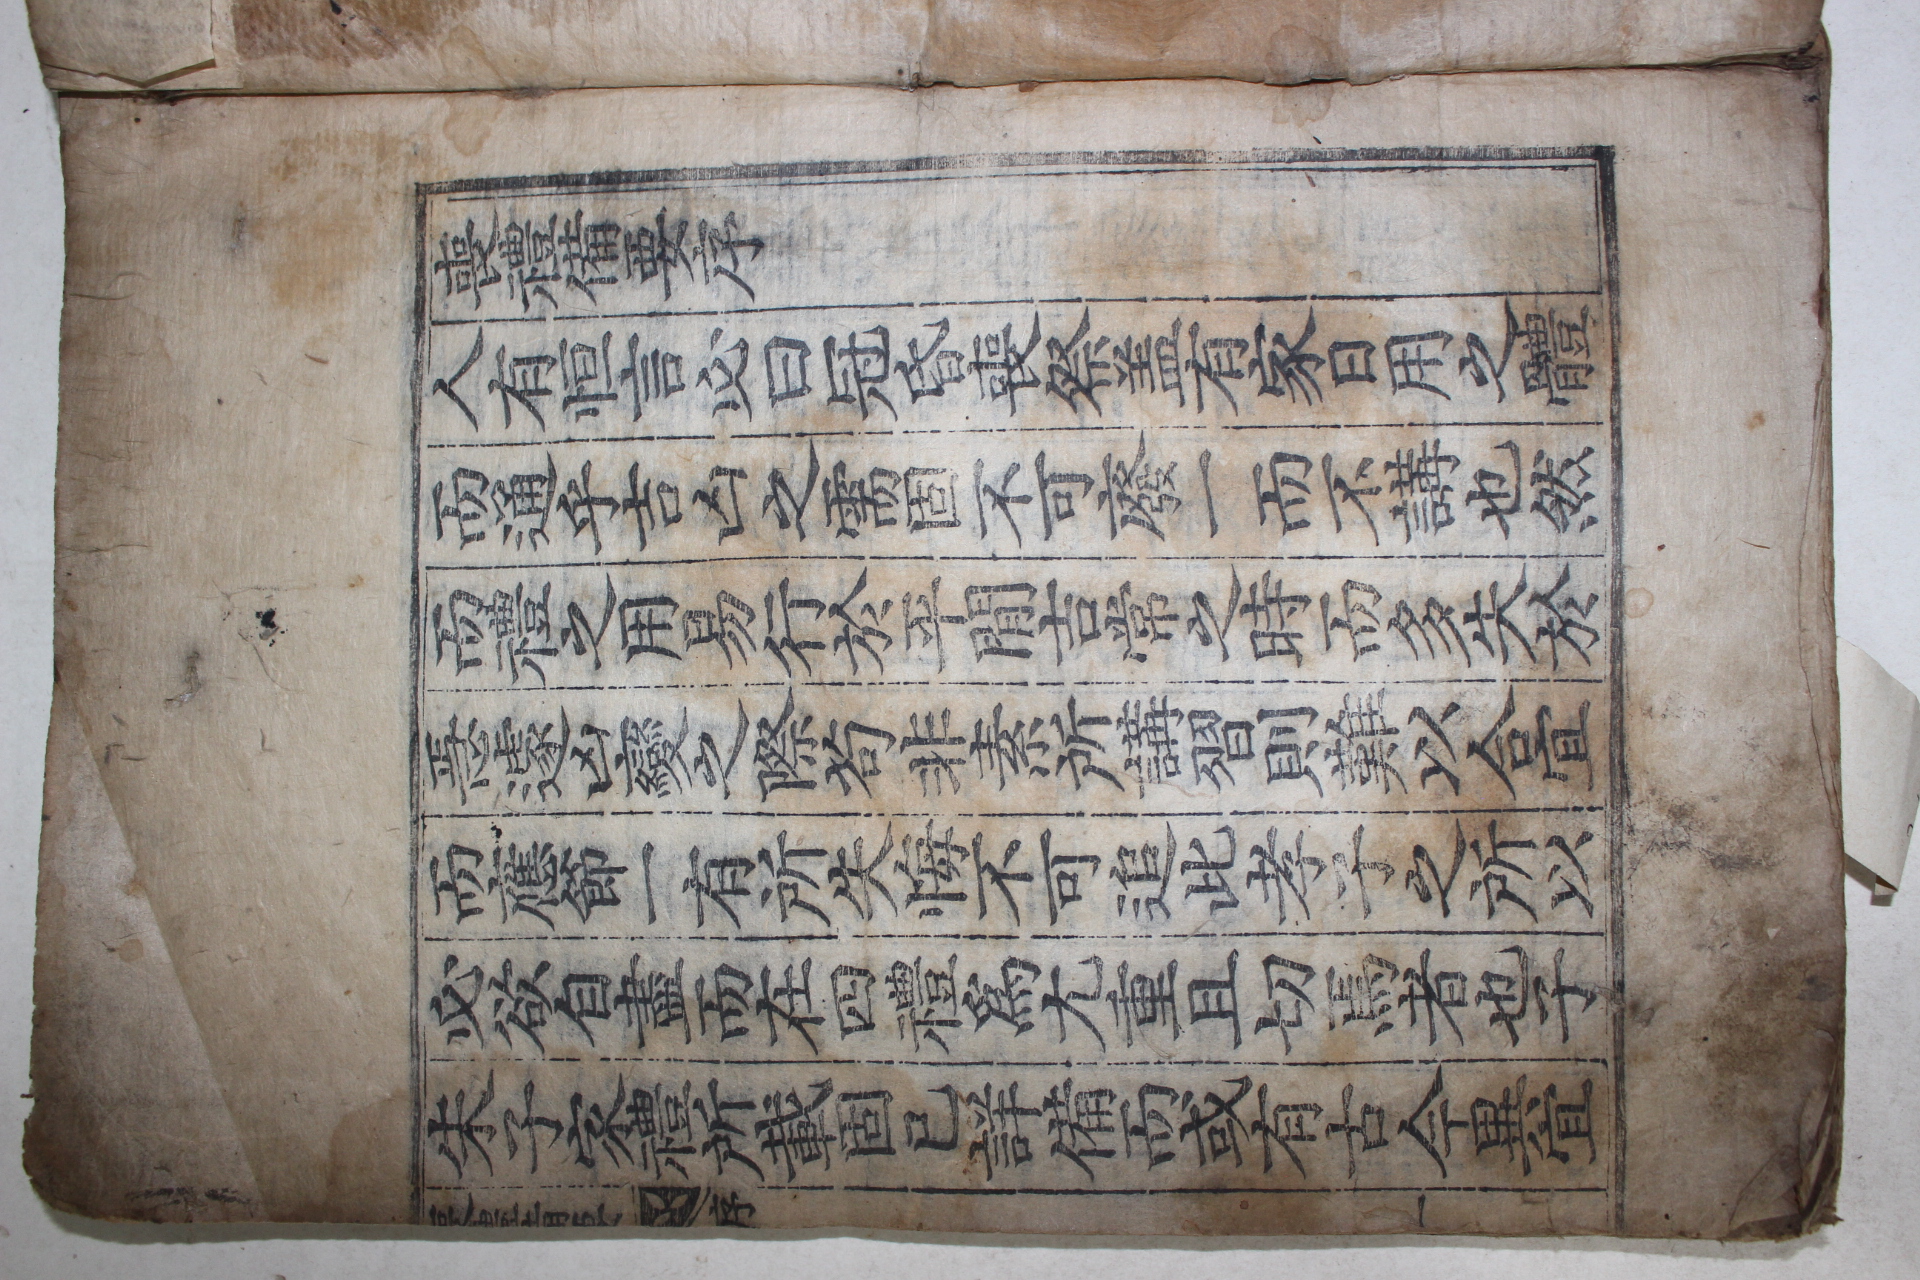 喪禮備要序
人有恒言必曰冠昏喪祭蓋有家日用之體
而通乎吉凶之需固不可廢一而不講也然
而禮之用易行於平閒吉常之時而多失於
悤遽凶變之際苟非素所講習則難以合宜
而應節一有所失悔不可追此孝子之所以
必欲自盡而在四禮爲尤重且切焉者也子
朱子家禮所載固已詳備而或有古今異宜
喪禮備要 序 一